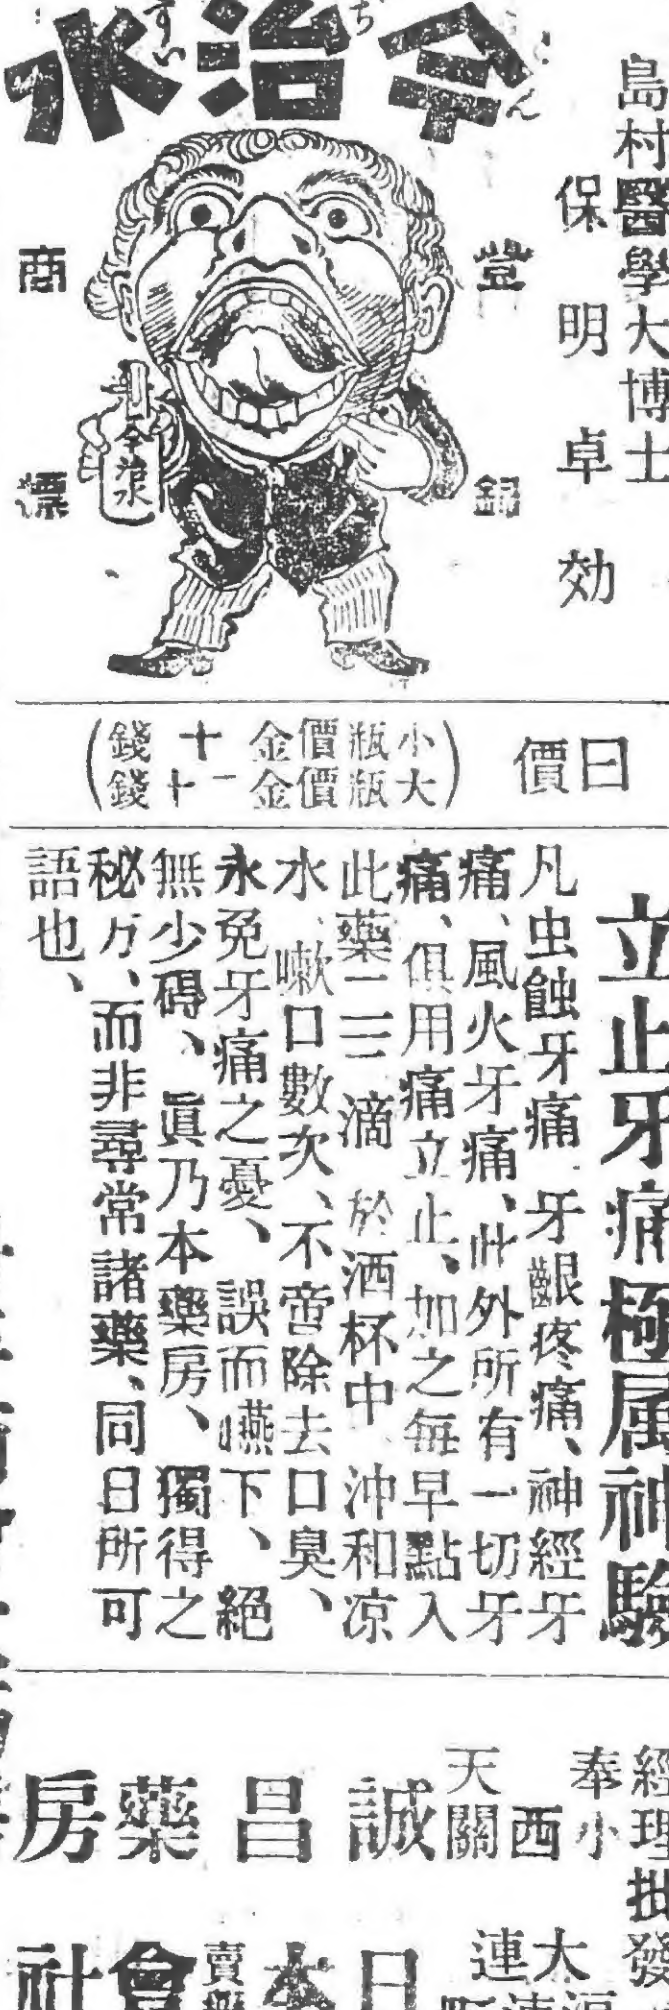 島村醫學大博士
保明卓効
今治水
こんぢすい
登錄
商標
今治水
日價
(小瓶價金十錢
大瓶價金一十錢)
立止牙痛極属神驗
凡虫蝕牙痛、牙齦疼痛、神經牙
痛、風火牙痛、此外所有一切牙
痛、俱用痛立止、加之每早點入
此藥二三滴於酒杯中、沖和凉
水、嗽口數次、不啻除去口臭、
永免牙痛之憂、誤而嚥下、絕
無少碍、眞乃本藥房、獨得之
秘方、而非尋常諸藥、同日所可
語也、
經理批發
奉小西
天關
誠昌藥房
大連
日本賣藥會社